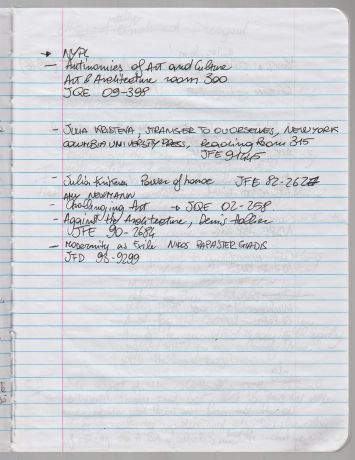 → NYPL
— Antinomies of Art and Culture
Art & Architecture room 300
JQE 09-398
- JULIA KRISTEVA, STRANGER TO OURSELVES, NEW YORK
COLUMBIA UNIVERSITY PRESS, Reading Room 315
JFE 91445
- Julia Kristeva Power of horror JFE 82-262
AMY NEWMANN
- Challenging Art → JQE 02-258
- Against the Architecture, Denis Hollier
JFE 90-2684
— Modernity as Exile NIKOS PAPASTERGIADIS
JFD 95-9299